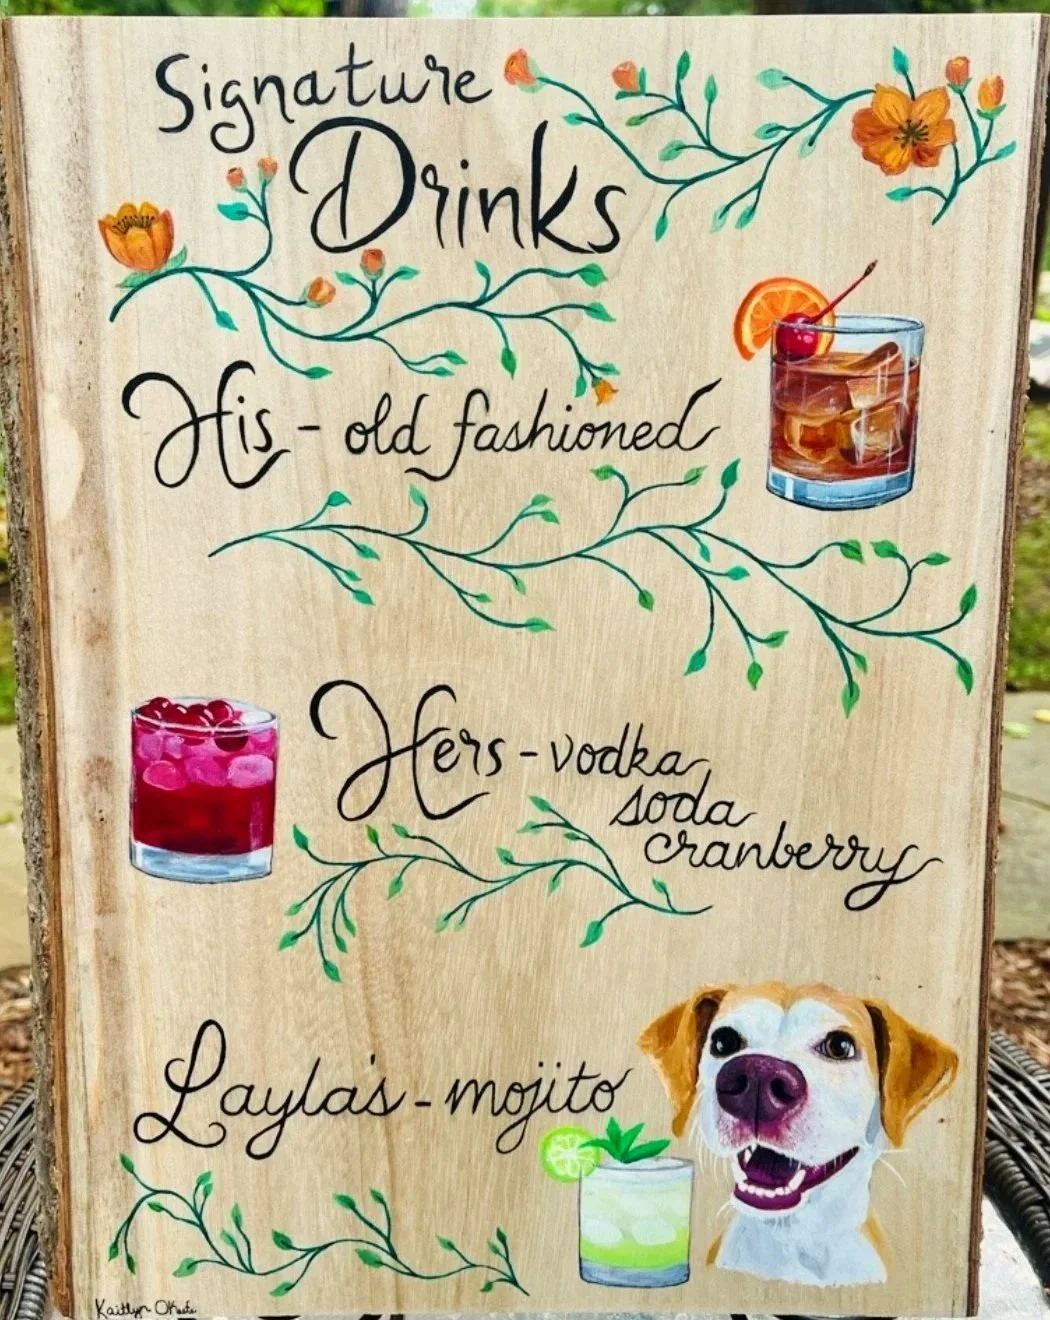 Signature
Drinks
His - old fashioned
Hers - vodka,
soda
cranberry
Layla's - mojito
Kaitlyn